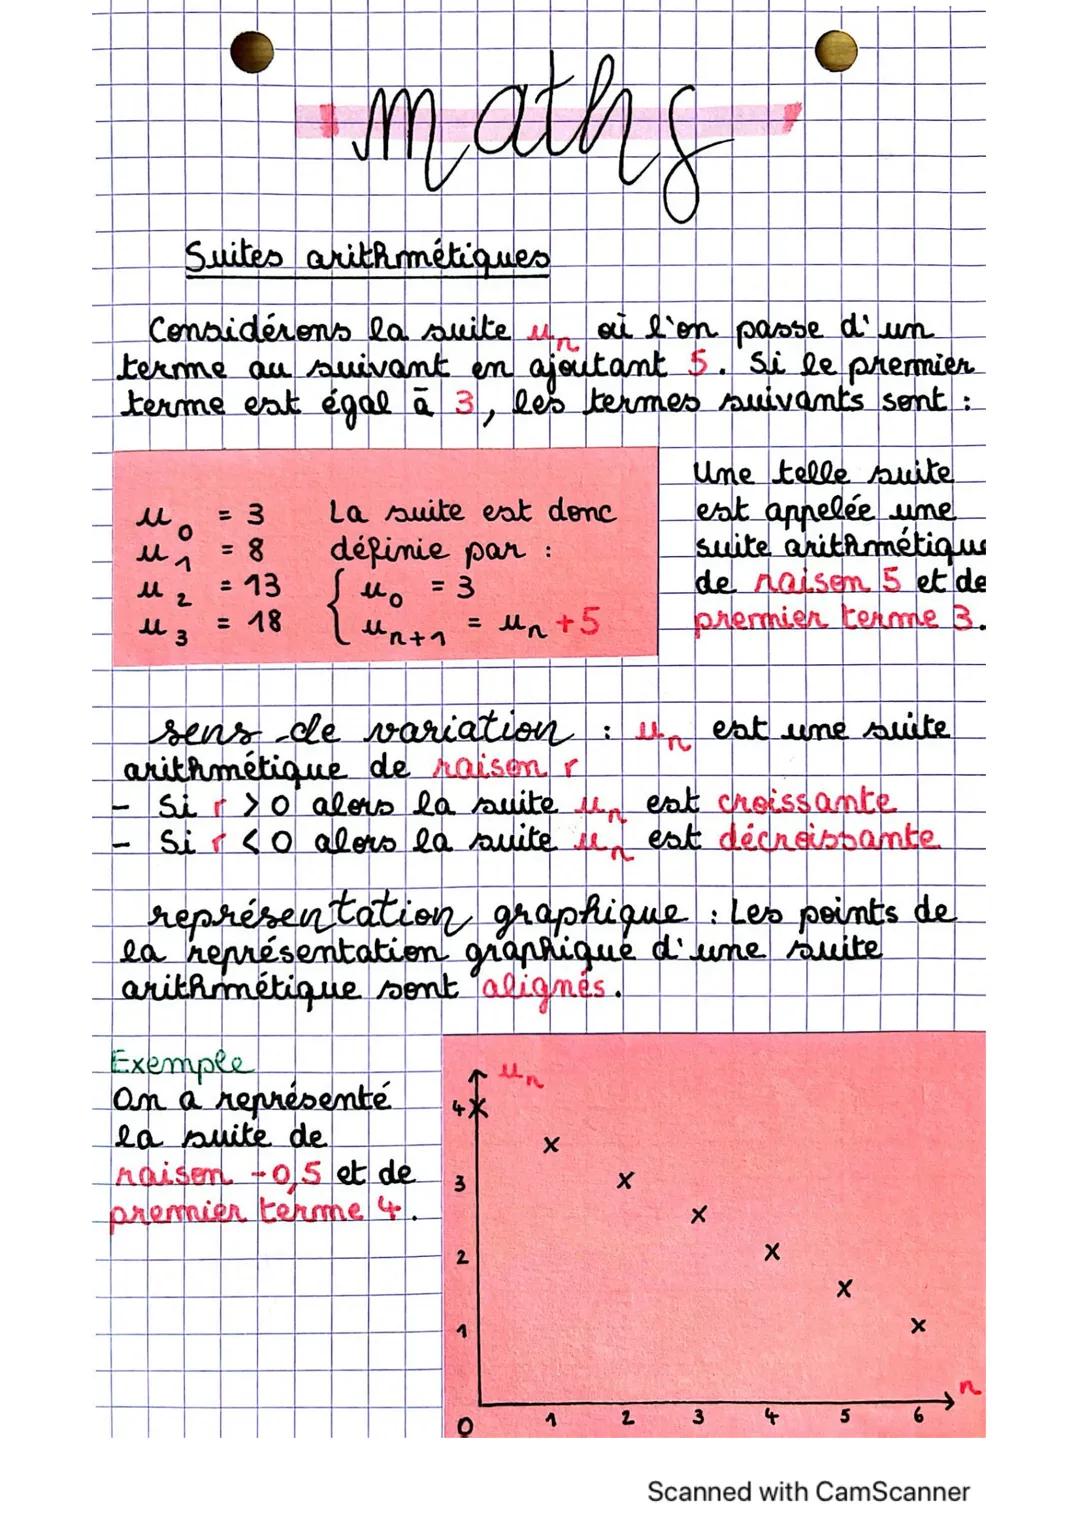 maths
Suites arithmétiques
Considérons la suite un où l'on passe d'un
terme au suivant en ajoutant 5. Si le premier
terme est égal à 3, les termes suivants sont :
u0 = 3
u1 = 8
u2 = 13
u3 = 18
La suite est donc
définie par :
{ u0 = 3
un+1 = un +5
Une telle suite
est appelée une
suite arithmétique
de raison 5 et de
premier terme 3.
sens de variation : un est une suite
arithmétique de raison r
- Si r > 0 alors la suite un est croissante
- Si r < 0 alors la suite un est décroissante
représentation graphique : Les points de
la représentation graphique d'une suite
arithmétique sont alignés.
Exemple
On a représenté
la suite de
raison -0,5 et de
premier terme 4.
un
4
3
2
1
0 1 2 3 4 5 6
n
Scanned with CamScanner